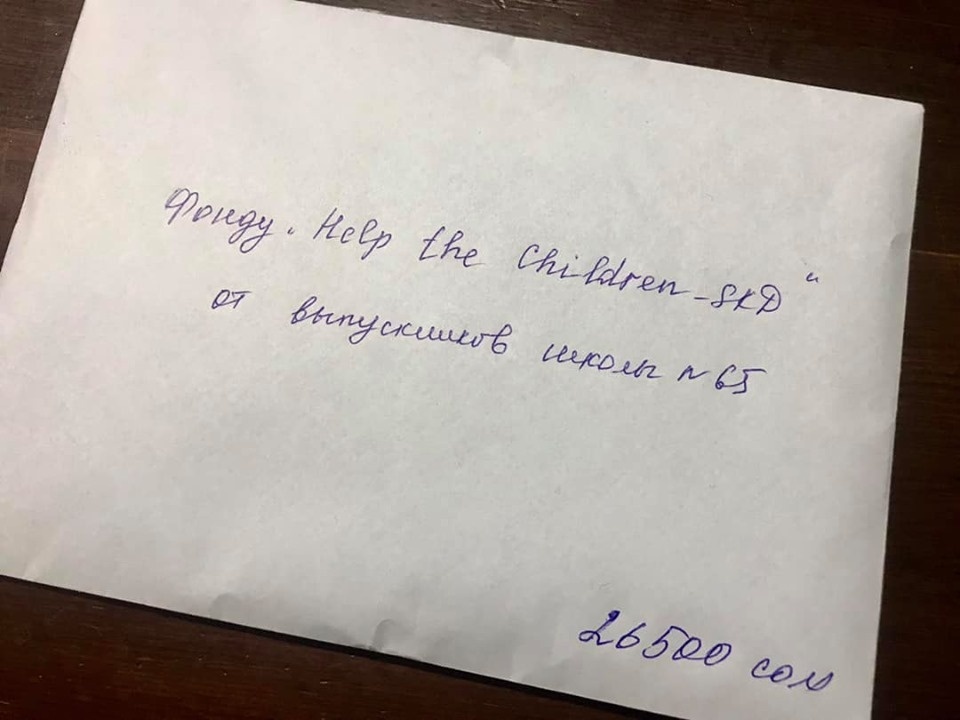 Фонду „Help the Children-SKD“
от выпускников школы №65
26500 сом